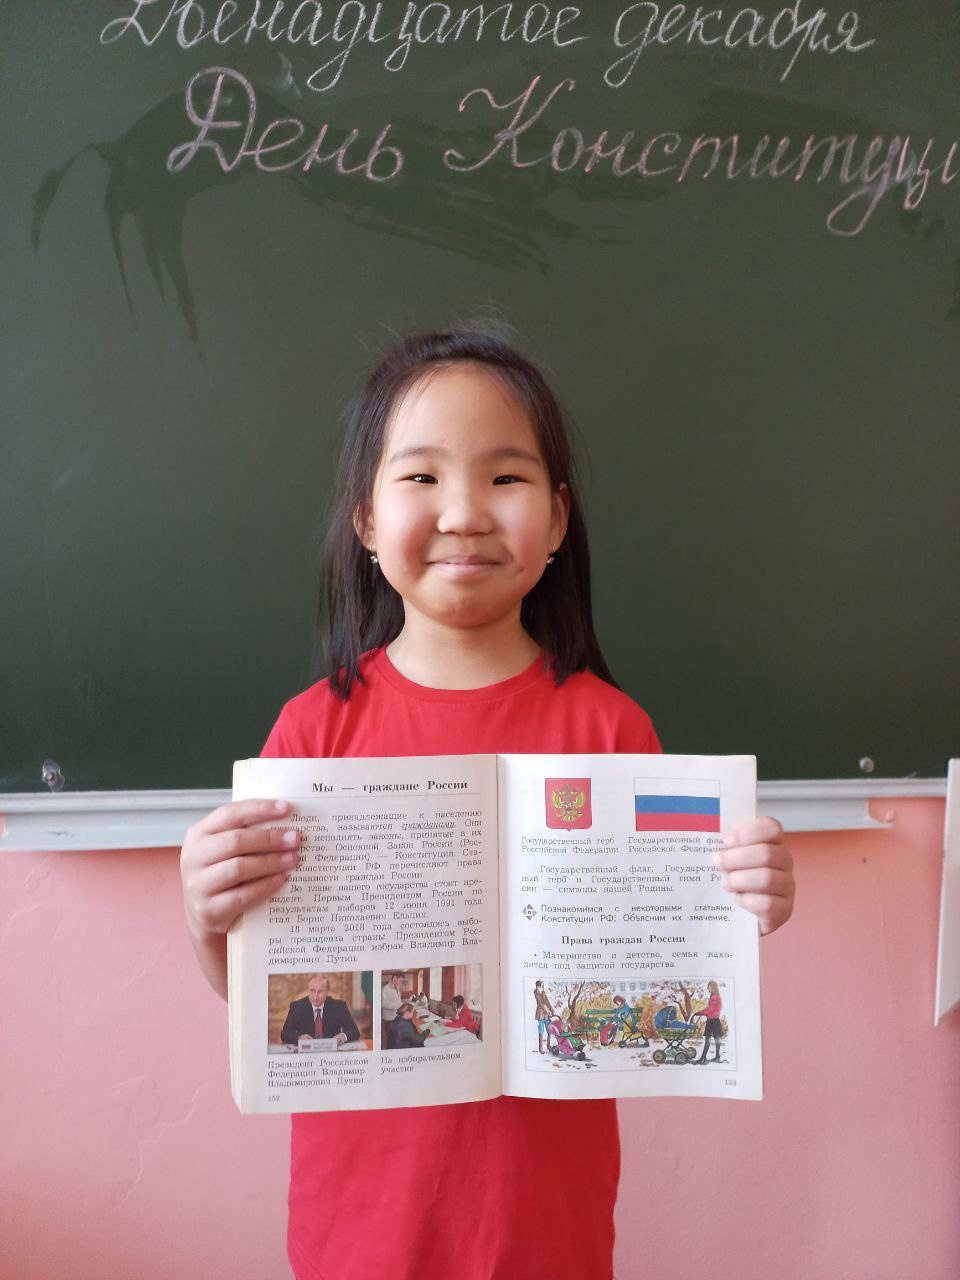 Двенадцатое декабря
День Конституци
Мы — граждане России
Люди, принадлежащие к населению
государства, называются гражданами. Они
исполнять законы, принятые в их
Основной Закон России (Рос-
Федерации) — Конституция. Ста-
Конституции РФ перечисляют права
граждан России.
Во главе нашего государства стоит пре-
зидент. Первым Президентом России по
результатам выборов 12 июня 1991 года
стал Борис Николаевич Ельцин.
18 марта 2018 года состоялись выбо-
ры президента страны. Президентом Рос-
сийской Федерации избран Владимир Вла-
димирович Путин.
Президент Российской
Федерации Владимир
Владимирович Путин
На избирательном
участке
152
Государственный герб
Российской Федерации
Государственный фла
Российской Федерации
Государственный флаг, Государстве
ный герб и Государственный гимн Ро
сии — символы нашей Родины.
Познакомимся с некоторыми статьями
Конституции РФ. Объясним их значение.
Права граждан России
• Материнство и детство, семья нахо-
дятся под защитой государства.
153